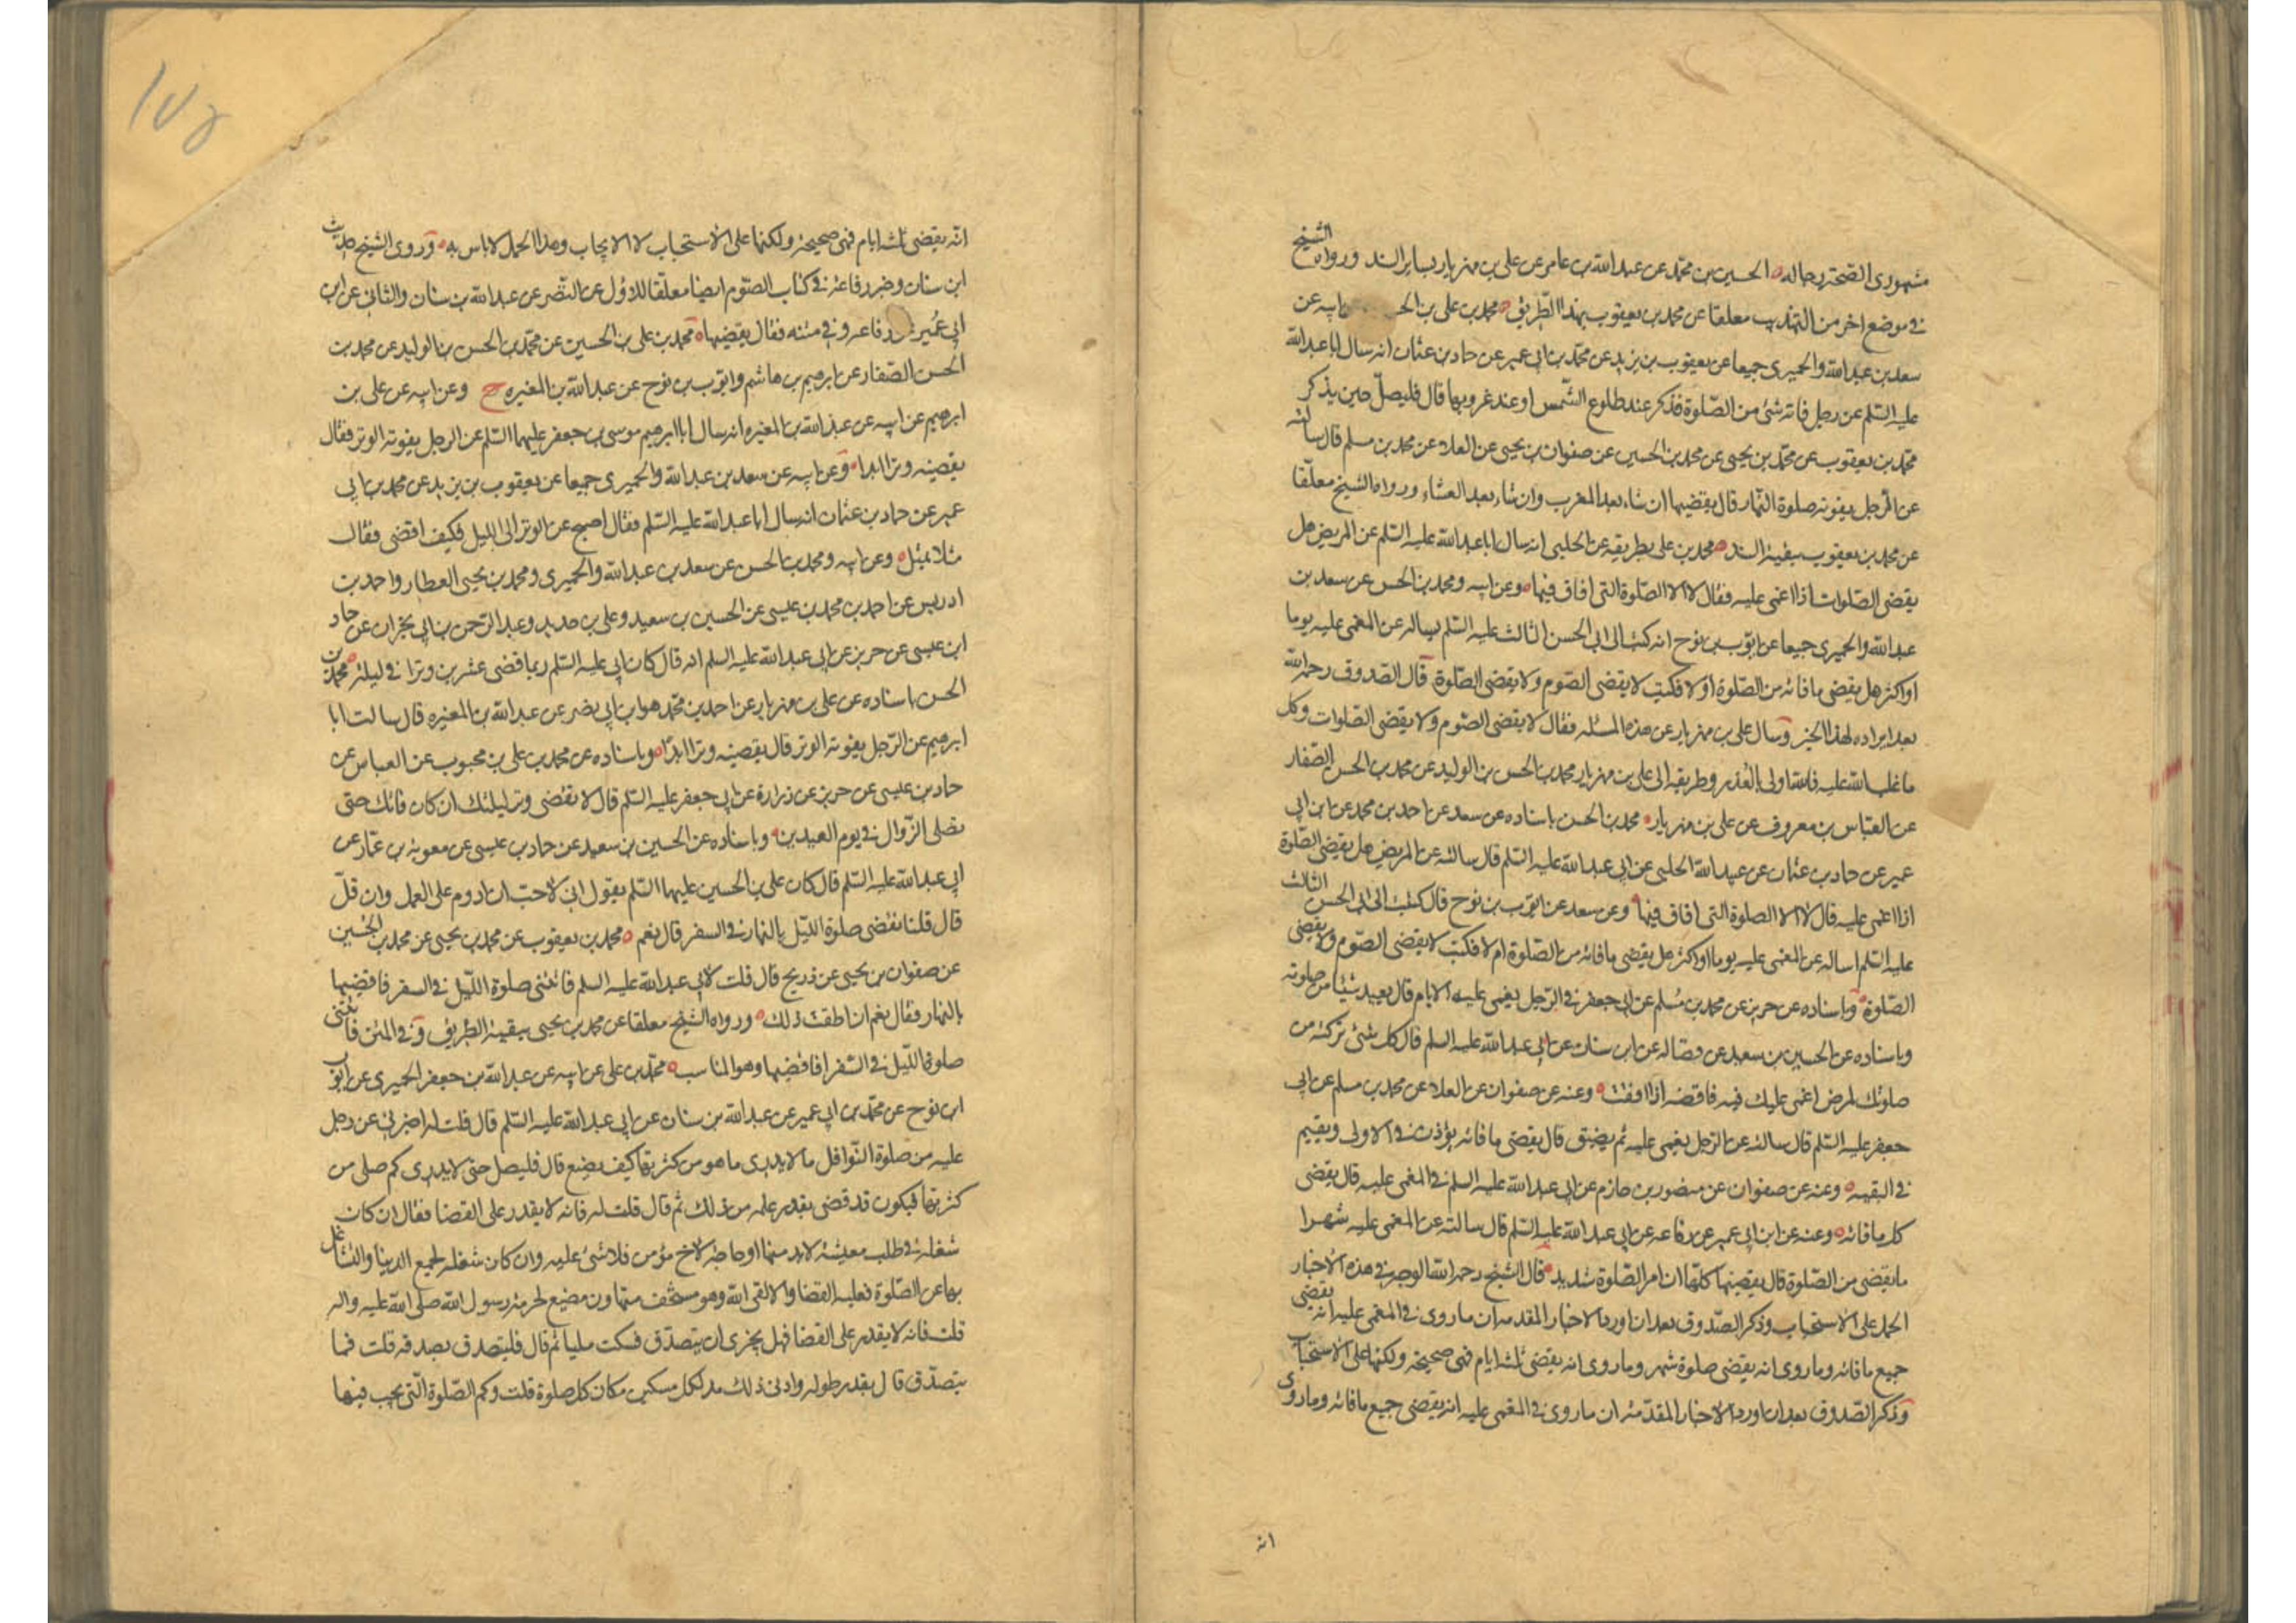 مشهوري الصحة رجاله الحسين بن محمد عن عبد الله بن عامر عن علي بن مهزيار بساير السند ورواه الشيخ
في موضع اخر من التهذيب معلقا عن محمد بن يعقوب بهذا الطريق محمد بن علي بن ابيه عن
سعد بن عبد الله والحميري جميعا عن يعقوب بن يزيد عن محمد بن ابي عمير عن حماد بن عثمان انه سال ابا عبد الله
عليه السلم عن رجل فاته شئ من الصلوة فذكر عند طلوع الشمس او عند غروبها قال فليصل حين يذكر
محمد بن يعقوب عن محمد بن يحيى عن محمد بن الحسين عن صفوان بن يحيى عن العلاء عن محمد بن مسلم قال سالته
عن الرجل يفوته صلوة النهار قال يقضيها ان شاء بعد المغرب وان شاء بعد العشاء ورواه الشيخ معلقا
عن محمد بن يعقوب ببقية السند محمد بن علي بطريقه عن الحلبي انه سال ابا عبد الله عليه السلم عن المريض هل
يقضي الصلوات اذا اغمي عليه فقال لا الا الصلوة التي افاق فيها وعن ابيه ومحمد بن الحسن عن سعد بن
عبد الله والحميري جميعا عن ايوب بن نوح انه كتب الى ابي الحسن الثالث عليه السلم يساله عن المغمى عليه يوما
او اكثر هل يقضي ما فاته من الصلوة او لا فكتب لا يقضي الصوم ولا يقضي الصلوة قال الصدوق رحمه الله
بعد ايراده لهذا الخبر وسال علي بن مهزيار عن هذه المسئله فقال لا يقضي الصوم ولا يقضي الصلوات وكل
ما غلب الله عليه فالله اولى بالعذر وطريقه الى علي بن مهزيار محمد بن الحسن بن الوليد عن محمد بن الحسن الصفار
عن العباس بن معروف عن علي بن مهزيار محمد بن الحسن باسناده عن سعد عن احمد بن محمد عن ابن ابي
عمير عن حماد بن عثمان عن عبيد الله الحلبي عن ابي عبد الله عليه السلم قال سالته عن المريض هل يقضي الصلوة
اذا اغمي عليه قال لا الا الصلوة التي افاق فيها وعن سعد عن ايوب بن نوح قال كتبت الى ابي الحسن الثالث
عليه السلم اساله عن المغمى عليه يوما او اكثر هل يقضي ما فاته من الصلوة ام لا فكتب لا يقضي الصوم ولا يقضي
الصلوة وباسناده عن حريز عن محمد بن مسلم عن ابي جعفر في الرجل يغمى عليه الايام قال لا يعيد شيئا من صلوته
وباسناده عن الحسين بن سعيد عن فضاله عن ابن سنان عن ابي عبد الله عليه السلم قال كل شئ تركته من
صلوتك لمرض اغمي عليك فيه فاقضه اذا افقت وعنه عن صفوان عن العلاء عن محمد بن مسلم عن ابي
جعفر عليه السلم قال سالته عن الرجل يغمى عليه ثم يفيق قال يقضي ما فاته يؤذن في الاولى ويقيم
في البقيه وعنه عن صفوان عن منصور بن حازم عن ابي عبد الله عليه السلم في المغمى عليه قال يقضي
كل ما فاته وعنه عن ابن ابي عمير عن رفاعه عن ابي عبد الله عليه السلم قال سالته عن المغمى عليه شهرا
ما يقضي من الصلوة قال يقضيها كلها ان امر الصلوة شديد قال الشيخ رحمه الله الوجه في هذه الاخبار
الحمل على الاستحباب وذكر الصدوق بعد ان اورد الاخبار المقدمه ان ما روي في المغمى عليه انه يقضي
جميع ما فاته وما روي انه يقضي صلوة شهر وما روي انه يقضي ثلثه ايام فهي صحيحه ولكنها على الاستحباب
وذكر الصدوق بعد ان اورد الاخبار المقدمة ان ما روي في المغمى عليه انه يقضي جميع ما فاته وما روي
انه
١٧٥
انه يقضي ثلثه ايام فهي صحيحة ولكنها على الاستحباب لا الايجاب وهذا الحمل لا باس به وروى الشيخ حديث
ابن سنان وخبر رفاعة في كتاب الصوم ايضا معلقا للاول عن النضر عن عبد الله بن سنان والثاني عن ابن
ابي عمير رفاعه وفي متنه فقال يقضيها محمد بن علي بن الحسين عن محمد بن الحسن بن الوليد عن محمد بن
الحسن الصفار عن ابرهيم بن هاشم وايوب بن نوح عن عبد الله بن المغيره ح وعن ابيه عن علي بن
ابرهيم عن ابيه عن عبد الله بن المغيره انه سال ابا ابرهيم موسى بن جعفر عليهما السلم عن الرجل يفوته الوتر فقال
يقضيه وترا ابدا وعن ابيه عن سعد بن عبد الله والحميري جميعا عن يعقوب بن يزيد عن محمد بن ابي
عمير عن حماد بن عثمان انه سال ابا عبد الله عليه السلم فقال اصبح عن الوتر الى الليل فكيف اقضي فقال
مثلا بمثل وعن ابيه ومحمد بن الحسن عن سعد بن عبد الله والحميري ومحمد بن يحيى العطار واحمد بن
ادريس عن احمد بن محمد بن عيسى عن الحسين بن سعيد وعلي بن حديد وعبد الرحمن بن ابي نجران عن حماد
ابن عيسى عن حريز عن ابي عبد الله عليه السلم انه قال كان ابي عليه السلم ربما قضى عشرين وترا في ليلة محمد بن
الحسن باسناده عن علي بن مهزيار عن احمد بن محمد هو ابن ابي نصر عن عبد الله بن المغيره قال سالت ابا
ابرهيم عن الرجل يفوته الوتر قال يقضيه وترا ابدا وباسناده عن محمد بن علي بن محبوب عن العباس عن
حماد بن عيسى عن حريز عن زرارة عن ابي جعفر عليه السلم قال لا تقضي وتر ليلتك ان كان فاتك حتى
تصلي الزوال في يوم العيدين وباسناده عن الحسين بن سعيد عن حماد بن عيسى عن معوية بن عمار عن
ابي عبد الله عليه السلم قال كان علي بن الحسين عليهما السلم يقول اني لاحب ان ادوم على العمل وان قل
قال قلنا نقضي صلوة الليل بالنهار في السفر قال نعم محمد بن يعقوب عن محمد بن يحيى عن محمد بن الحسين
عن صفوان بن يحيى عن ذريح قال قلت لابي عبد الله عليه السلم فاتتني صلوة الليل في السفر فاقضيها
بالنهار فقال نعم ان اطقت ذلك ورواه الشيخ معلقا عن محمد بن يحيى ببقية الطريق وفي المتن فاتتني
صلوة الليل في السفر افاقضيها وهو المناسب محمد بن علي عن ابيه عن عبد الله بن جعفر الحميري عن ايوب
ابن نوح عن محمد بن ابي عمير عن عبد الله بن سنان عن ابي عبد الله عليه السلم قال قلت له اخبرني عن رجل
عليه من صلوة النوافل ما لا يدري ما هو من كثرتها كيف يصنع قال فليصل حتى لا يدري كم صلى من
كثرتها فيكون قد قضى بقدر علمه من ذلك ثم قال قلت له فانه لا يقدر على القضا فقال ان كان
شغله في طلب معيشة لا بد منها او حاجة لاخ مؤمن فلا شئ عليه وان كان شغله لجمع الدنيا والتشاغل
بها عن الصلوة فعليه القضا والا لقى الله وهو مستخف متهاون مضيع لحرمة رسول الله صلى الله عليه واله
قلت فانه لا يقدر على القضا فهل يجزي ان يتصدق فسكت مليا ثم قال فليتصدق بصدقه قلت فما
يتصدق قال بقدر طوله وادنى ذلك مد لكل مسكين مكان كل صلوة قلت وكم الصلوة التي يجب فيها